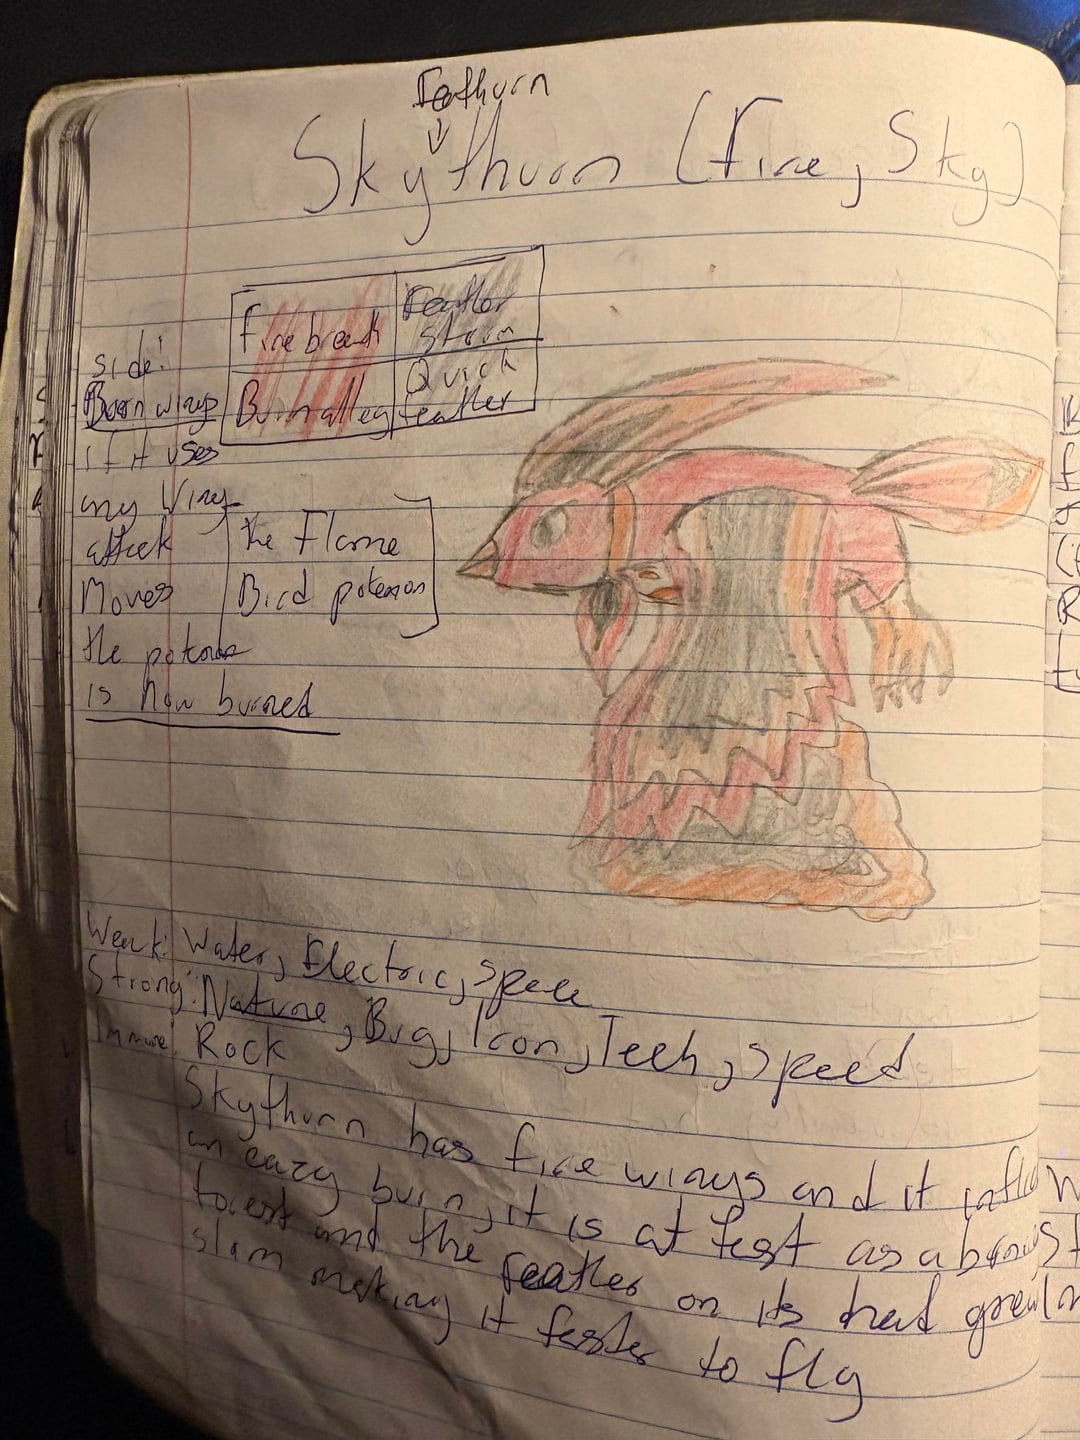 Feathurn
Skythurn (Fire, Sky)
Fire breath
Feather
storm
Burn alley
Quick
feather
side:
Burn wings
if it uses
any Wing
attack
Moves
the pokemon
is now burned
the Flame
Bird pokemon
Weak: Water, Electric, Space
Strong: Nature, Bug, Iron, Tech, Speed
Immune: Rock
Skythurn has fire wings and it inflic
an eazy burn, it is at fast as a
forest and the feather on its head grew
slam making it faster to fly